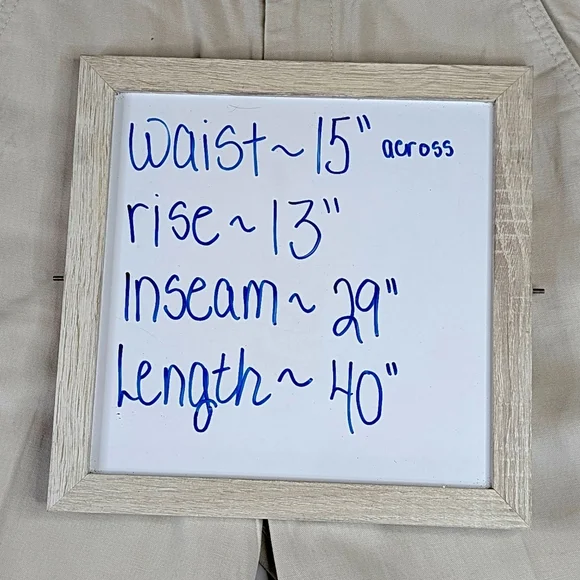 Waist ~ 15" across
rise ~ 13"
Inseam ~ 29"
Length ~ 40"